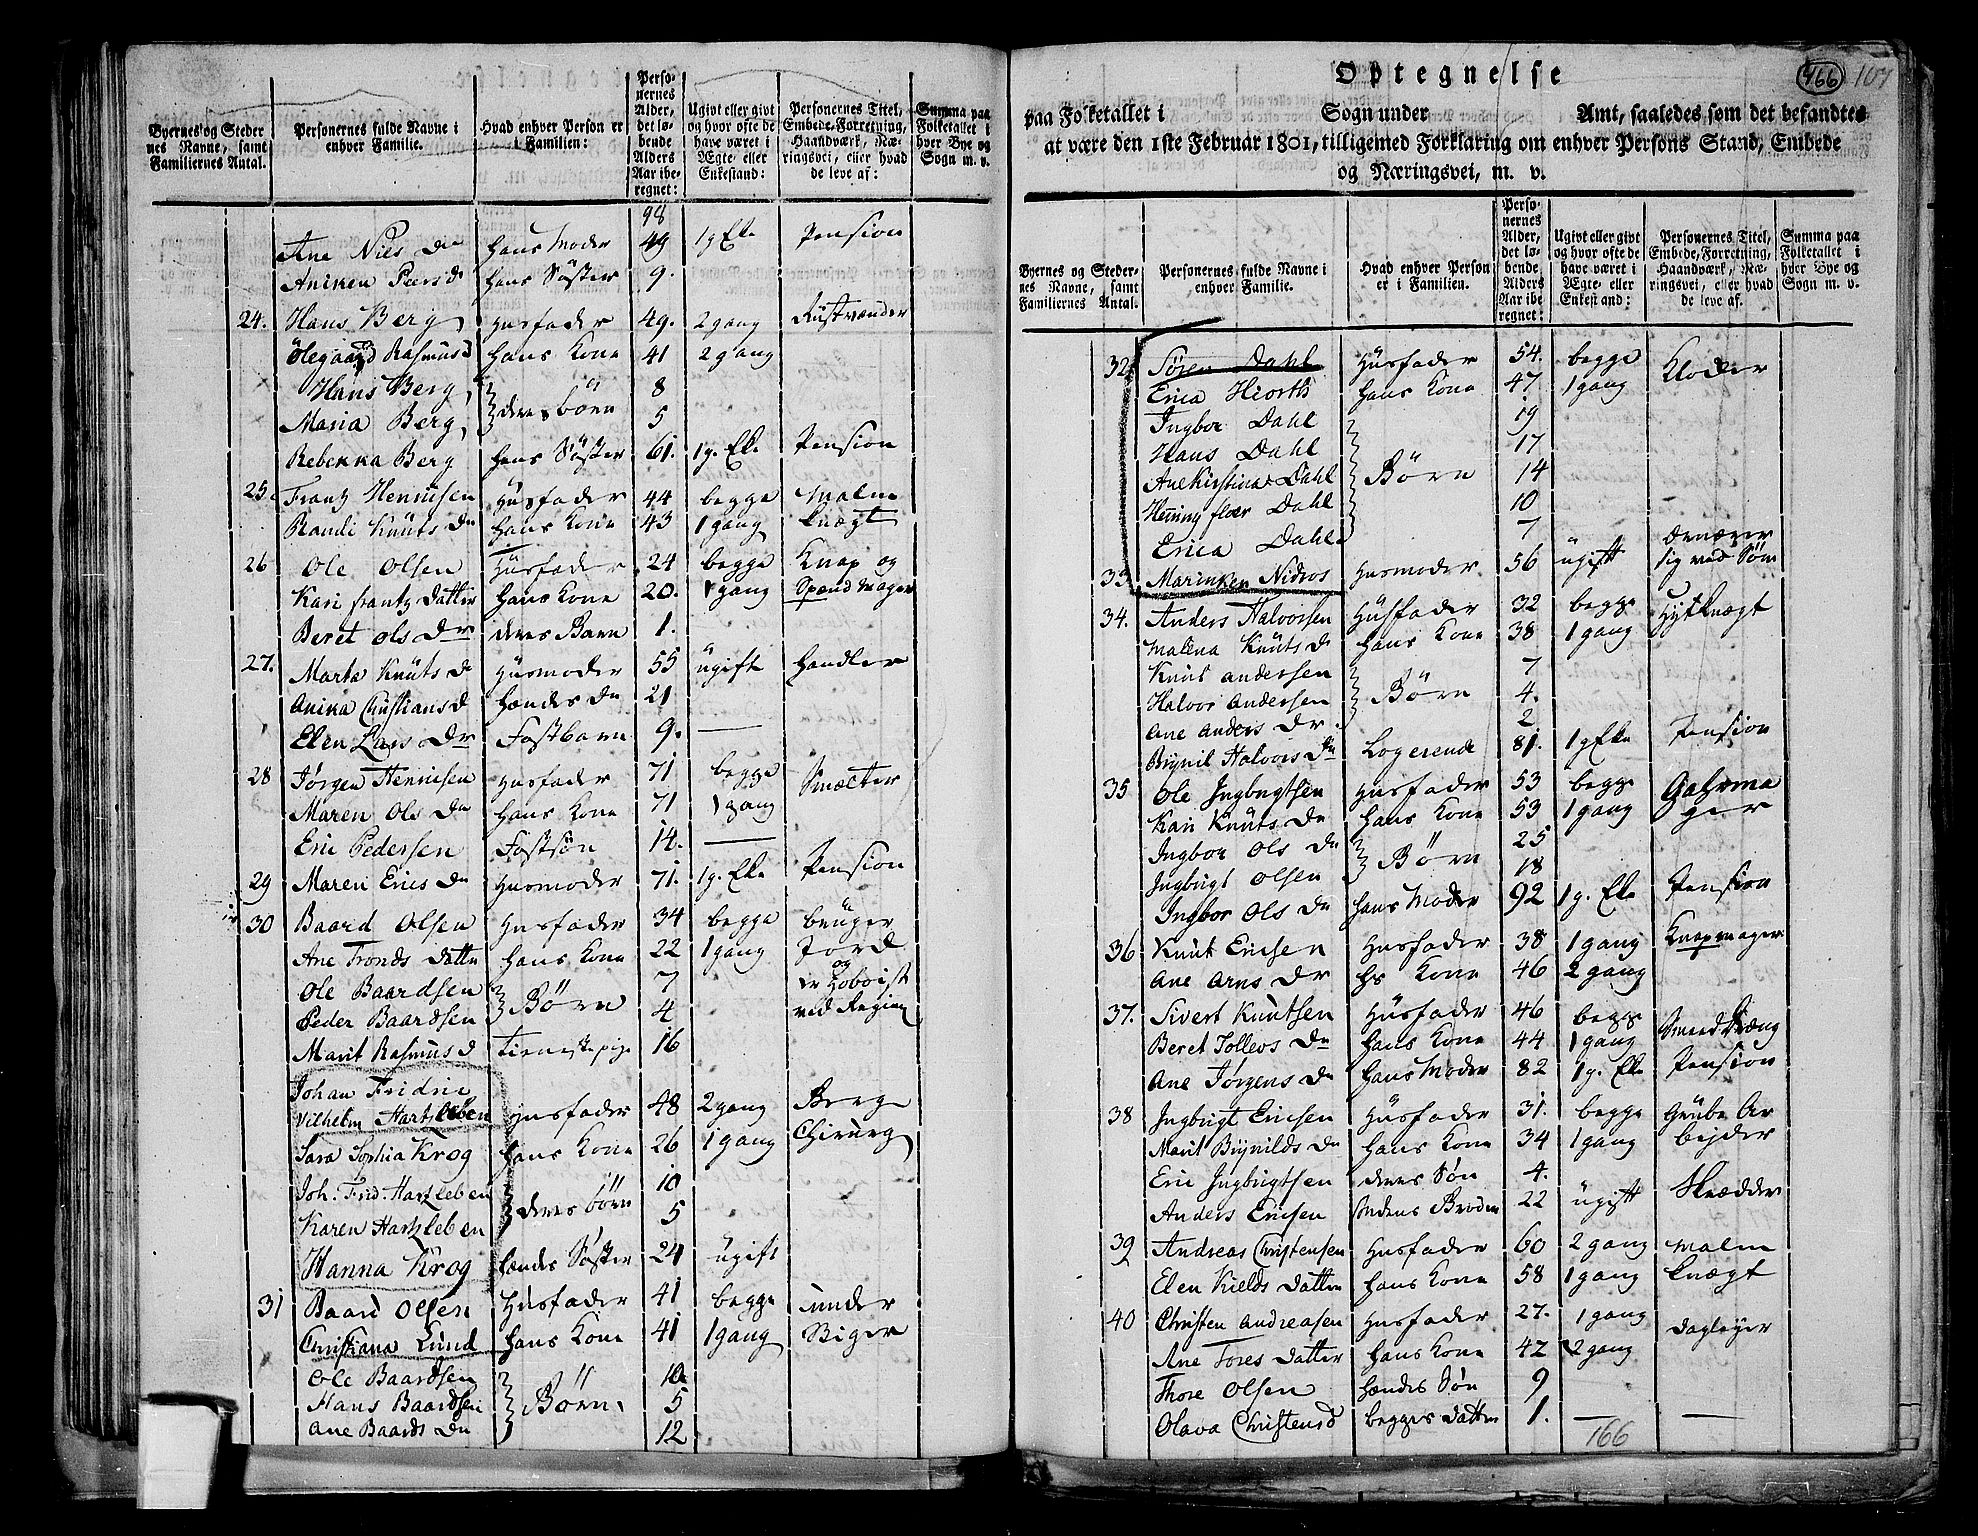 Byernes og Steder
nes Navne, samt
Familiernes Antal.
Personernes fulde Navne i
enhver Familie.
Hvad enhver Person er
i Familien:
Perso-
nernes
Alder,
det lø-
bende
Alders
Aar ibe-
regnet:
Ugivt eller givt
og hvor ofte de
have været i
Ægte- eller
Enkestand:
Personernes Titel,
Embede, Forretning,
Haandværk, Næ-
ringsvei, eller hvad
de leve af:
Summa paa
Folketallet i
hver Bye og
Sogn m. v.
98
Ane Niels Dr hans Moder 49 1 g Eke Pension
Aniken Peers d hans Söster 9.
24. Hans Berg Husfader 49. 2 gang Küstvænder
Olegaard Rasmus d hans Kone 41 2 gang
Hans Berg, 8
deres börn
Maria Berg, 5
Rebekka Berg hans Söster 61. 1 g. Eke Pension
25. Frantz Hennisen Husfader 44 begge Malm
Randi Knüts Dr hans Kone 43 1 gang knægt
26 Ole Olsen Husfader 24 begge Knap og
Kari frantz Datter hans Kone 20. 1 gang Spend mager
Beret Ols Dr deres Barn 1.
27. Marta Knüts d Husmoder 55 ugift handler
Anika Christians d hendes Dr 21
Elen Lars Dr Fostbarn 9. —
28 Jørgen Hennisen Husfader 71 begge Smælter
Maren Ols Dr hans Kone 71 1 gang
Eric Pedersen Fostsøn 14. —
29 Maren Erics Dr Husmoder 71. 1 g. Eke Pension
30 Baard Olsen Husfader 34 begge bruger
Ane Tronds Datter hans Kone 22 1 gang Jord
og
Ole Baardsen 7 er Hoboist
Börn
Peder Baardsen 4 ved Regim
Marit Rasmus d tieneste pige 16
Johan Fridric
Vilhelm Hartzleben Husfader 48 2 gang Berg
Sara Sophia Krog hans Kone 26 1 gang Chirurg
Joh. Frid. Hartzleben 10
deres börn
Karen Hartzleben 5
Hanna Krog hendes Söster 24 ugift
31 Baard Olsen Husfader 41 begge under
Christiana Lund hans Kone 41 1 gang Stiger
Ole Baardsen 10
Hans Baardsen Börn 5
Ane Baards Dr 12
Optegnelse
466 107
paa Folketallet i Sogn under Amt, saaledes som det befandtes
at være den 1ste Februar 1801, tilligemed Forklaring om enhver Persons Stand, Embede
og Næringsvei, m. v.
Byernes og Steder-
nes Navne, samt
Familiernes Antal.
Personernes fulde Navne i
enhver Familie.
Hvad enhver Person
er i Familien.
Perso-
nernes
Alder,
det lø-
bende
Alders
Aar ibe
regnet:
Ugivt eller givt
og hvor ofte de
have været i
Ægte- eller
Enkestand:
Personernes Titel,
Embede, Forretning,
Haandværk, Næ-
ringsvei, eller hvad
de leve af.
Summa paa
Folketallet i
hver Bye og
Sogn m. v.
32 Søren Dahl Husfader 54. begge Kloder
Erica Hiorth hans Kone 47. 1 gang
Ingbor Dahl 19
Hans Dahl 17
Ane Kirstina Dahl Börn 14
Henning floer Dahl 10
Erica Dahl 7
ærnærer
33 Marinken Nidros Husmoder 56 ügift sig ved Söm
34. Anders Halvorsen Husfader 32 begge Hytknægt
Malena Knüts d hans Kone 38 1 gang
Knut Andersen 7
Halvor Andersen Börn 4.
Ane Anders Dr. 2
Brynil Halvors Dr Logerende 81. 1 g Eke Pension
35 Ole Ingbrigtsen Husfader 53 begge Gahrma
Kari Knüts Dr hans Kone 53 1 gang ger
Ingbor Ols Dr 25
Börn
Ingbrigt Olsen 18
Ingbor Ols Dr hans Moder 92 1 g. Eke Pension
36 Knut Ericsen Husfader 38 1 gang Knapmager
Ane Arns Dr hs Kone 46 2 gang
37. Sivert Knutsen Husfader 46 begge Smeed dræng
Beret Tollevs Dr hans Kone 44 1 gang
Ane Jørgens Dr hans Moder 82 1 g. Eke Pension
38 Ingbrigt Ericsen Husfader 31. begge Grube Ar
Marit Brynilds Dr hans Kone 34 1 gang bejder
Eric Ingbrigtsen deres Søn 4.
Anders Ericsen Mdens Broder 22 ugift Skrædder
39 Andreas Christensen Husfader 60 2 gang Malm
Elen Kields Datter hans Kone 58 1 gang knægt
40 Christen Andreasen Husfader 27. 1 gang Dagleyer
Ane Tores Datter hans Kone 42 2 gang
Thore Olsen hendes Søn 9
Olava Christens d begges Datter 1. — —
166